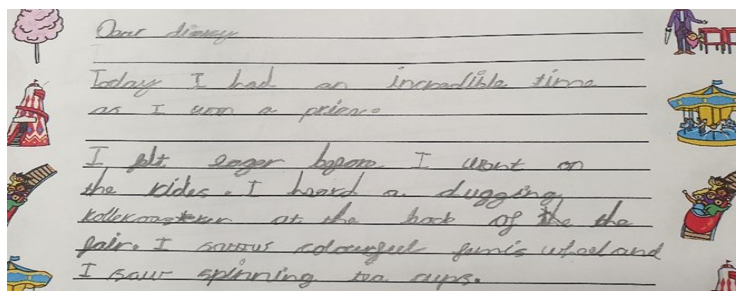 Dear diary
Today I had an incredible time
as I won a prize.
I felt eager before I went on
the rides. I heard a chugging
at the back of the the
fair. I colourful ferris wheel and
I saw spinning tea cups.